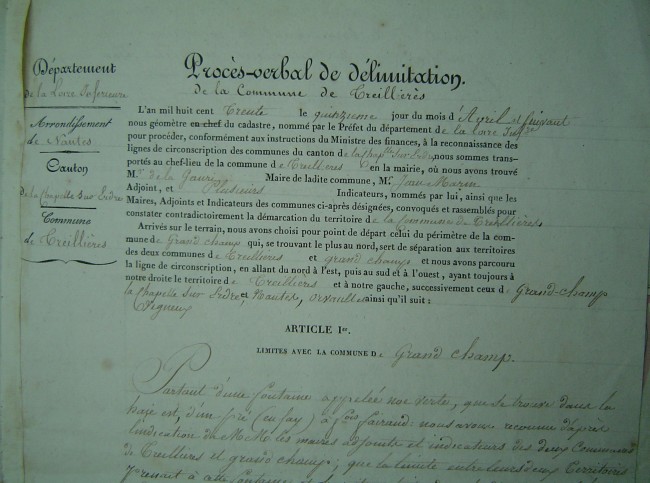 Département
de la Loire Inferieure
Arrondissement
de Nantes
Canton
de la Chapelle Sur Erdre
Commune
de Treillières
Procès-verbal de délimitation.
de la Commune de Treillières
L'an mil huit cent Trente le quinzieme jour du mois d'Avril et suivant
nous géomètre en chef du cadastre, nommé par le Préfet du département de la Loire Infre
pour procéder, conformément aux instructions du Ministre des finances, à la reconnaissance des
lignes de circonscription des communes du canton de la Chaplle Sur Erdre nous sommes trans-
portés au chef-lieu de la commune de Treillieres en la mairie, où nous avons trouvé
Mr de la Maire de ladite commune, Mr Jean Marin
Adjoint, et Plusieurs Indicateurs, nommés par lui, ainsi que les
Maires, Adjoints et Indicateurs des communes ci-après désignées, convoqués et rassemblés pour
constater contradictoirement la démarcation du territoire de la Commune de Treillières
Arrivés sur le terrain, nous avons choisi pour point de départ celui du périmètre de la com-
mune de Grand champ qui, se trouvant le plus au nord, sert de séparation aux territoires
des deux communes de Treillieres et grand champ et nous avons parcouru
la ligne de circonscription, en allant du nord à l'est, puis au sud et à l'ouest, ayant toujours à
notre droite le territoire de Treillières et à notre gauche, successivement ceux de Grand-champ
la Chapelle Sur Erdre, et Nantes, orvault ainsi qu'il suit:
Vigneux
ARTICLE Ier.
LIMITES AVEC LA COMMUNE De Grand champ.
Partant d'une fontaine appelée noe verte, que se trouve dans la
haie est, d'un pré (en fay) à fois nous avons reconnu d'après
l'indication de MM les maires adjoints et indicateurs des deux Communes
de Treillieres et grand champ; que la limite entre leurs deux Territoires
prenait à cette fontaine et